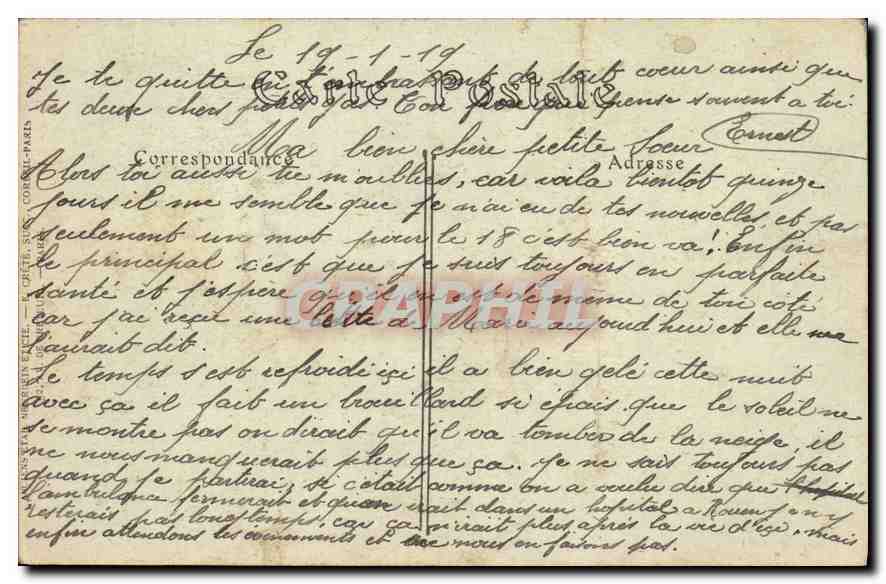 Le 19-1-19
Je te quitte en t'embrassant de tout coeur ainsi que
Carte Postale
tes deux chers petits gas Ton frère qui pense souvent a toi.
Ernest
Ma bien chère petite Soeur
Correspondance
Adresse
Alors toi aussi tu m'oublies, car voila bientot quinze
jours il me semble que je n'ai eu de tes nouvelles et pas
seulement un mot pour le 18 c'est bien va! Enfin
le principal c'est que je suis toujours en parfaite
santé et j'espère qu'il en est de meme de ton côté
car j'ai reçu une lettre de Marie aujourd'hui et elle me
l'aurait dit.
Le temps s'est refroidi içi il a bien gelé cette nuit
avec ça il fait un brouillard si épais que le soleil ne
se montre pas on dirait qu'il va tomber de la neige, il
ne nous manquerait plus que ça. Je ne sais toujours pas
quand je partirai, si c'etait comme on a voulu dire que l'hopital
l'ambulance fermerait et quon irait dans un hopital a Rouen j'en y
resterais pas longtemps, car ça n'irait plus après la vie d'içi, mais
enfin attendons les évènements et ne nous en faisons pas.
CRÉTÉ, SUCC, CORBEIL-PARIS
CRAPHIL